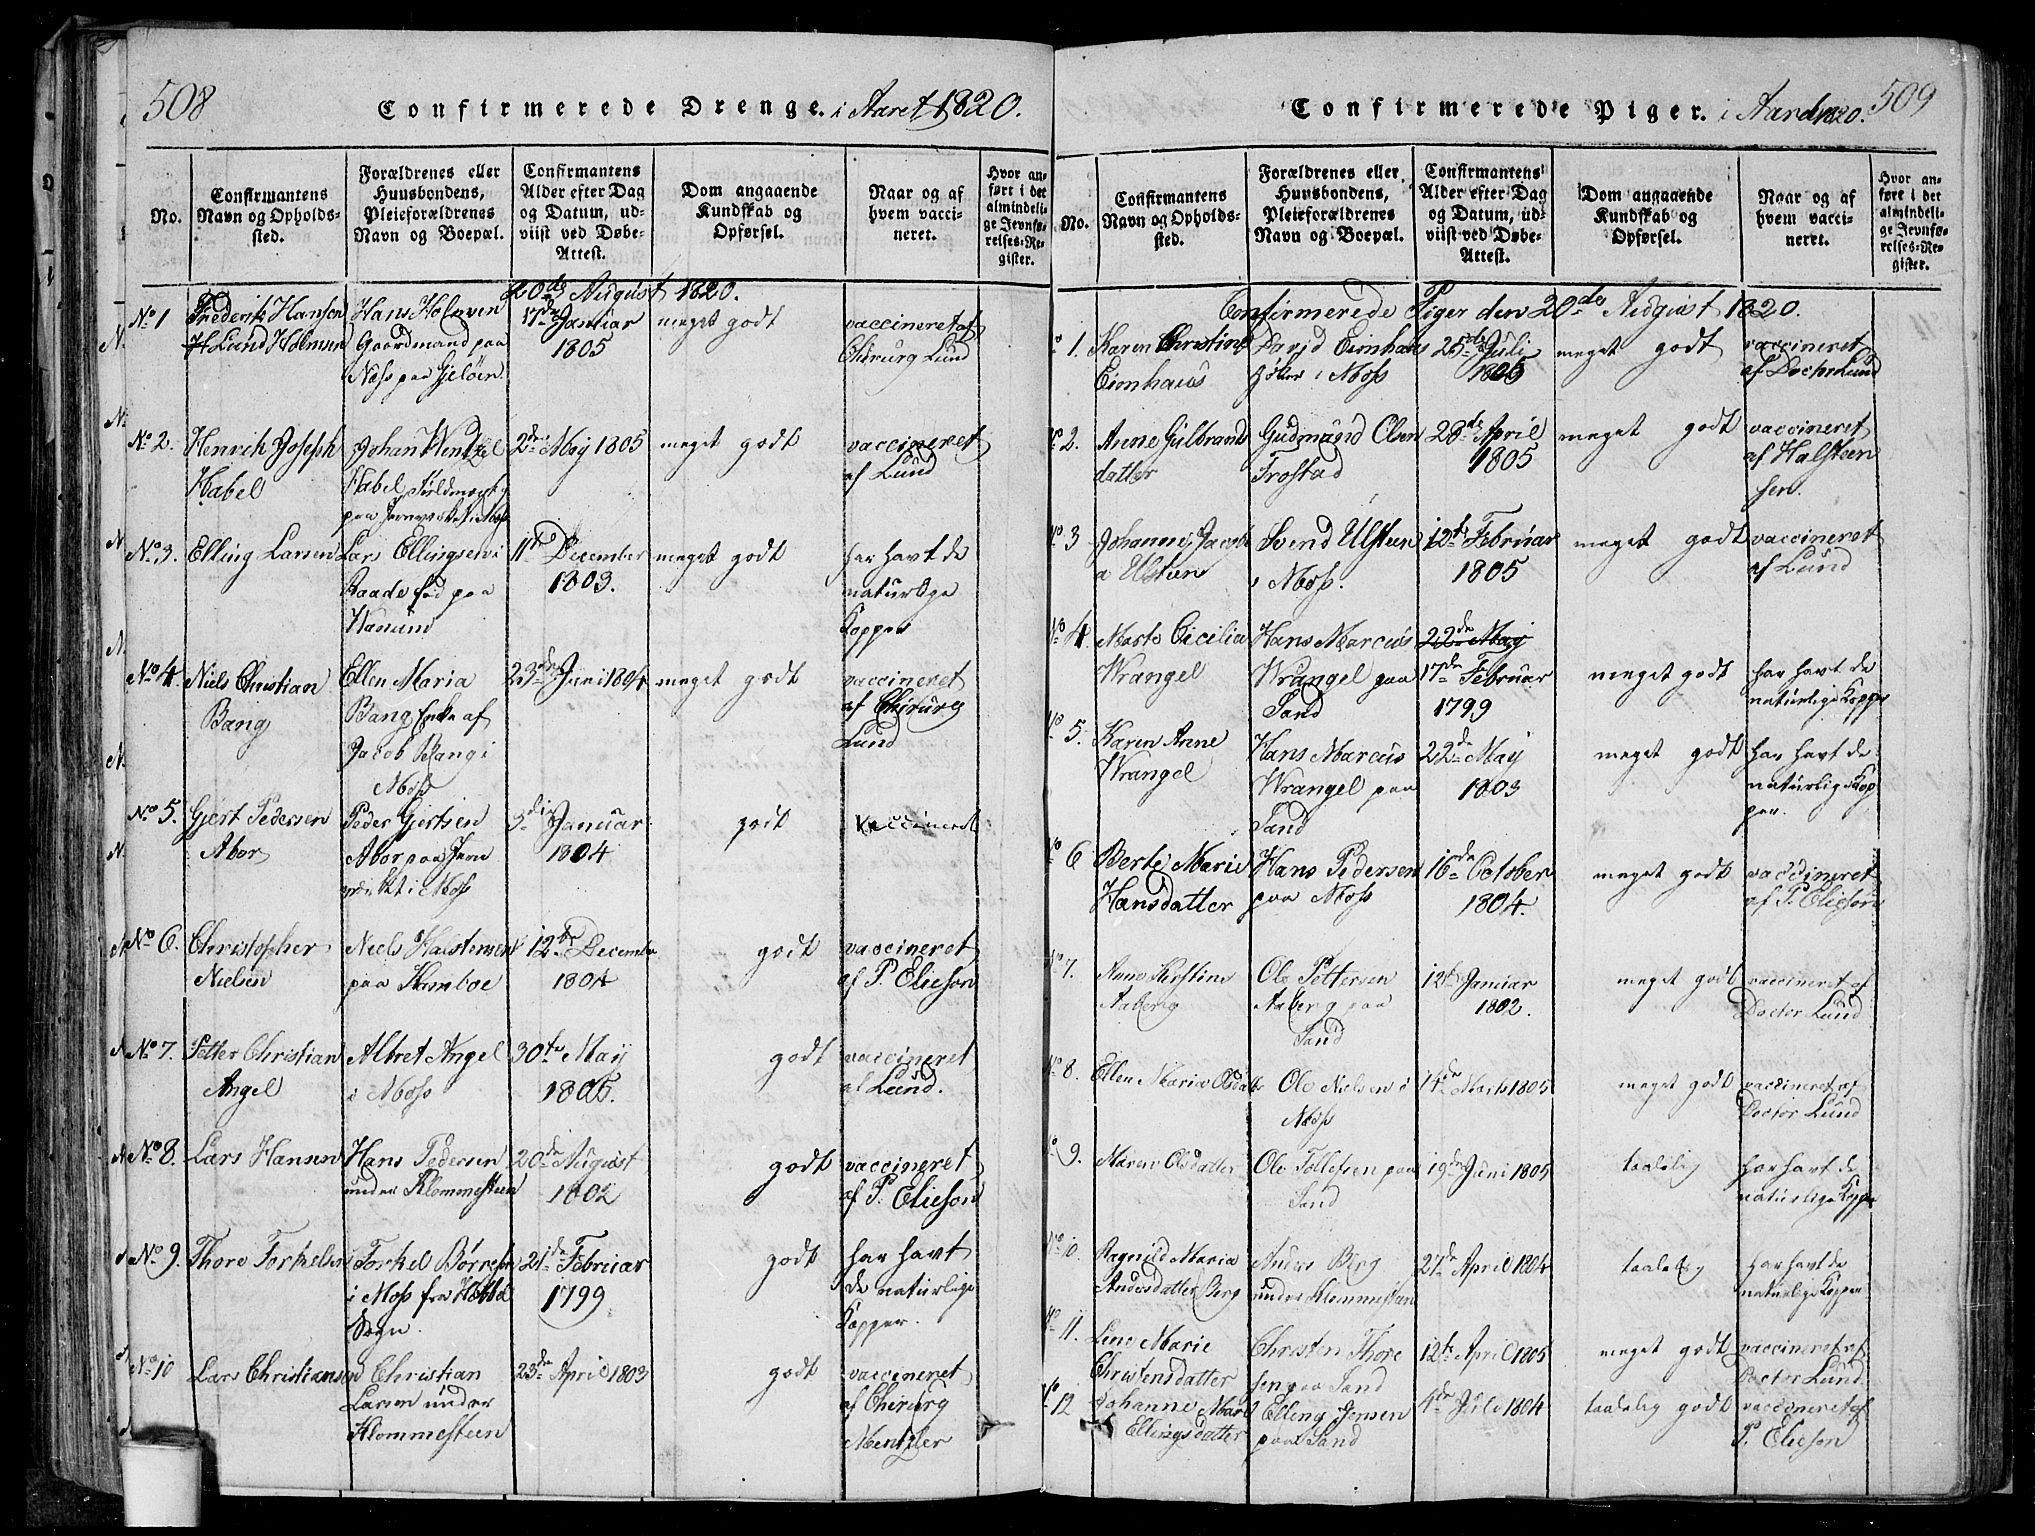 508
Confirmerede Drenge. i Aaret 1820.
No.
Confirmantens
Navn og Opholds-
sted.
Forældrenes eller
Huusbondens,
Pleieforældrenes
Navn og Boepæl.
Confirmantens
Alder efter Dag
og Datum, ud-
viist ved Døbe-
Attest.
Dom angaaende
Kundskab og
Opførsel.
Naar og af
hvem vacci-
neret.
Hvor an-
ført i det
almindeli-
ge Jevnfø-
relses-Re-
gister.
20de August 1820.
No 1
Frederik Hansen
Lund Holmsen
Hans Holmsen
Gaardmand paa
Næss paa Gjeløen
17de Januar
1805
meget godt
vaccineret af
Chirurg Lund
No 2.
Henrik Joseph
Habel
Johan Wentzel
Habel Fuldmægtig
paa Jernværket i Moss
2de May 1805
meget godt
vaccineret
af Lund
No 3.
Elling Larsen
Lars Ellingsen i
Raade fød paa
Wanum
11te December
1803.
meget godt
har havt de
naturlige
Kopper
No 4
Niels Christian
Bang
Ellen Maria
Bang Enke af
Jacob Bang i
Moss
23de Juni 1804
meget godt
vaccineret
af Chirurg
Lund
No 5.
Gjert Pedersen
Abor
Peder Gjertsen
Abor paa Jern
værket i Moss
3die Januar
1804
godt
vaccineret
No 6.
Christopher
Nielsen
Niels Halstensen
paa Kumboe
12te December
1804
godt
vaccineret
af P. Elieson
No 7.
Petter Christian
Angel
Albret Angel
i Moss
30te May
1805.
godt
vaccineret
af Lund.
No 8.
Lars Hansen
Hans Pedersen
under Klommesteen
20de August
1802
godt
vaccineret
af P. Elieson
No 9.
Thore Torkelsen
Torkel Børresen
i Moss fra Høbbel
Sogn.
21de Februar
1799
godt
har havt
de naturlige
Kopper.
No 10
Lars Christiansen
Christian
Larsen under
Klommesteen
23de April 1803
godt
vaccineret
af Chirurg
Mentzler
Confirmerede Piger. i Aaret 1820. 509
No.
Confirmantens
Navn og Opholds-
sted.
Forældrenes eller
Huusbondens,
Pleieforældrenes
Navn og Boepæl.
Confirmantens
Alder efter Dag
og Datum, ud-
viist ved Døbe-
Attest.
Dom angaaende
Kundskab og
Opførsel.
Naar og af
hvem vacci-
neret.
Hvor an-
føre i det
almindeli-
ge Jevnfø-
relses-Re-
gister.
Confirmerede Piger den 20de August 1820.
No 1.
Karen Christine
Eimhaus
David Eimhaus
i Moss
25de Juli
1805
meget godt
vaccineret
af Doctor Lund
No 2.
Anne Gulbrands
datter
Gudmund Olsen
Trostad
28de April
1805
meget godt
vaccineret
af Halsteen
sen.
No 3
Johanne Jacob
a Ulsteen
Svend Ulsteen
i Moss.
12te Februar
1805
meget godt
vaccineret
af Lund
No 4.
Marte Cicilia
Wrangel
Hans Marcus
Wrangel paa
Sand
22de May
17de Februar
1799
meget godt
har havt de
naturlige Kopper
No 5.
Karen Anne
Wrangel
Hans Marcus
Wrangel paa
Sand
22de May
1803
meget godt
har havt de
naturlige Kop
per.
No 6
Berte Marie
Hansdatter
Hans Pedersen
paa Moss
16de October
1804.
meget godt
vaccineret
af P. Elieson
No 7.
Anne Kirstine
Aaberg
Ole Pettersen
Aaberg paa
Sand
12te Januar
1802.
meget godt
vaccineret af
Doctor Lund
No 8.
Ellen Maria Olsdatter
Ole Nielsen i
Moss
14de Marts 1805
meget godt
vaccineret af
Doctor Lund
No 9.
Maren Olsdatter
Ole Tollefsen paa
Sand
19de Juni 1805
taalelig
har havt de
naturlige Kopper
No 10.
Ragnild Maria
Andersdatter Berg
Anders Berg
under Klommesteen
27de April 1804
taalelig
har havt de
naturlige Kopper
No 11.
Line Marie
Christensdatter
Christen Thore
sen paa Sand
12te April 1805
meget godt
vaccineret af
Doctor Lund
No 12
Johanne Marie
Ellingsdatter
Elling Jensen
paa Sand
4de Juli 1804
taalelig godt
vaccineret af
P. Elieson